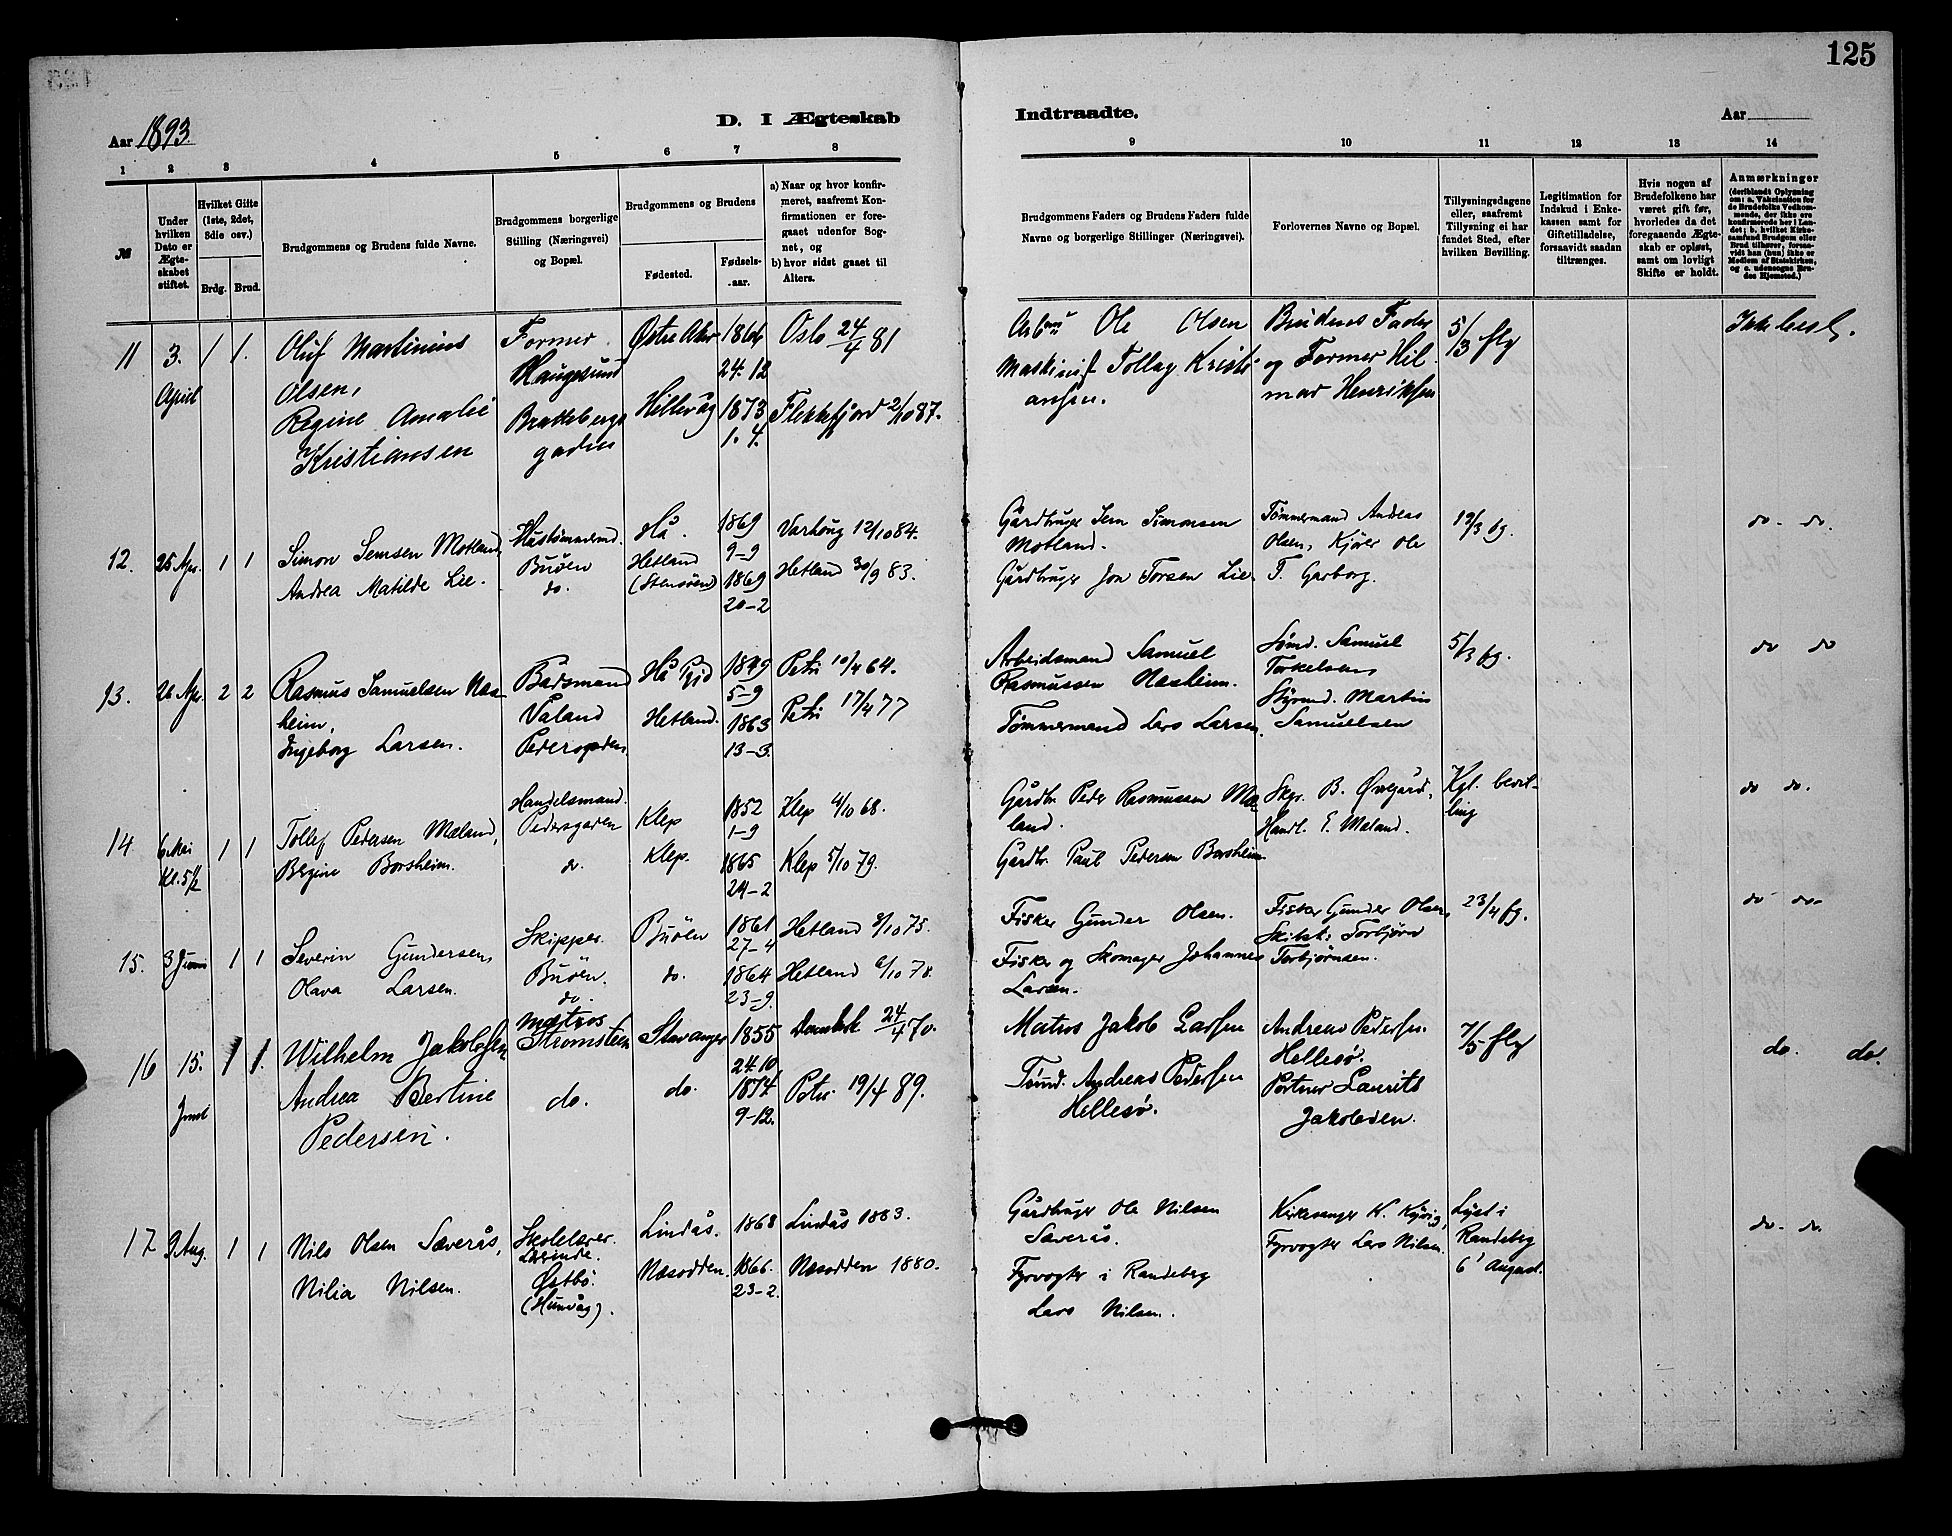 125
Aar 1893.
D. I Ægteskab
Indtraadte.
Aar
1 2 3 4 5 6 7 8 9 10 11 12 13 14
№
Under hvilken Dato er Ægteskabet stiftet.
Hvilket Gifte (1ste, 2det, 3die osv.)
Brdg. Brud.
Brudgommens og Brudens fulde Navne.
Brudgommens borgerlige Stilling (Næringsvei) og Bopæl.
Brudgommens og Brudens
Fødested.
Fødsels-aar.
a) Naar og hvor konfirmeret, saafremt Konfirmationen er foregaaet udenfor Sognet, og
b) hvor sidst gaaet til Alters.
Brudgommens Faders og Brudens Faders fulde Navne og borgerlige Stillinger (Næringsvei).
Forlovernes Navne og Bopæl.
Tillysningsdagene eller, saafremt Tillysning ei har fundet Sted, efter hvilken Bevilling.
Legitimation for Indskud i Enkekassen samt for Giftetilladelse, forsaavidt saadan tiltrænges.
Hvis nogen af Brudefolkene har været gift før, hvorledes da det foregaaende Ægteskab er opløst, samt om lovligt Skifte er holdt.
Anmærkninger
(deriblandt Oplysning om: a. Vakcination for de Brudefolks Vedkommende, der ikke ere konfirmerede her i Landet; b. hvilket Kirkesamfund Brudgom eller Brud tilhører, forsaavidt han (hun) ikke er Medlem af Statskirken, og c. udensogns Brudes Hjemsted.)
11 3. April 1 1.
Oluf Martinius
Olsen,
Regine Amalie
Kristiansen
Former
Haugesund
gaden
Østre Aker
Hillevåg
24.12
1873
1. 4.
Oslo 24/4 81
Flekkefjord 2/10 87.
Ole Olsen
Maskinist Tollag Kristi-
ansen.
Brudens Fader
og Former Hil-
mar Henriksen
5/3 flg
12. 25 Apr. 1 1
Simon Jensen Motland,
Andrea Matilde Lie.
Hustømmermd.
Buøen
do.
Hå.
Hetland
1869
9-9
1869
20-2
Varhoug 12/10 84.
Hetland 30/9 83.
Gårdbruger Jens Simonsen
Motland.
Gårdbruger Jon Torsen Lie.
Tømmermand Andreas
Olsen, Kjører Ole
T. Garborg.
19/3 fg.
do. do.
13. 26 Apr. 2 2
Rasmus Samuelsen Næs-
heim,
Ingeborg Larsen.
Baadsmand
Valand
Pedersgaden
Hetland.
1849
5-9
1863
13-3.
Petri 10/4 64.
Petri 17/4 77
Arbeidsmand Samuel
Rasmussen Næsheim.
Tømmermand Lars Larsen.
Tømd. Samuel
Torkelsen
Styrmd. Martin
Samuelsen
5/3 fg.
do do
14 6 Mai Kl. 5½ 1 1
Tollef Pedersen Mæland,
Bergine Borsheim.
Handelsmand.
Pedersgaden
do.
Klep
Klep.
1852
1-9
1865
24-2
Klep 4/10 68.
Klep 5/10 79.
Gårdbr. Peder Rasmussen Mæ-
land.
Gårdbr. Paul Pedersen Borsheim
Skgr. B. Øvegård,
Handl. E. Mæland.
Kgl. bevil-
ling
do do.
15. 3 Juni 1 1
Severin Gundersen,
Olava Larsen.
Skipper.
Buöen.
do.
Buöen
do.
1861
27-4
1864
23-9.
Hetland 3/10 75.
Hetland 6/10 78.
Fisker Gunder Olsen.
Fisker og Skomager Johannes
Larsen.
Fisker Gunder Olsen,
Skibsk. Torbjørn
Torbjørnsen.
23/4 fg.
do do.
16 15. Juni 1 1.
Wilhelm Jakobsen
Andrea Bertine
Pedersen.
Matros
Strømsteen
do.
Stavanger
do.
1855
24.10
1874.
9-12.
Domkirk 24/4 70.
Petri 19/4 89.
Matros Jakob Larsen
Tømd. Andreas Pedersen
Hellesø.
Andreas Pedersen.
Hellesø.
Portner Laurits
Jakobsen.
7/5 flg
do. do.
17 9 Aug. 1 1
Nils Olsen Sæverås,
Nilia Nilsen.
Skolelærer.
Lærinde.
Østbö.
(Hunvåg).
Lindås.
Næsodden.
1868
1866.
23-2.
Lindås 1883.
Næsodden 1880.
Gårdbruger Ole Nilsen
Sæverås.
Fyrvogter i Randeberg
Lars Nilsen.
Kirkesanger K. Kyvig,
Fyrvogter Lars Nilsen.
Lyst i
Randeberg
6' August.
do. do.